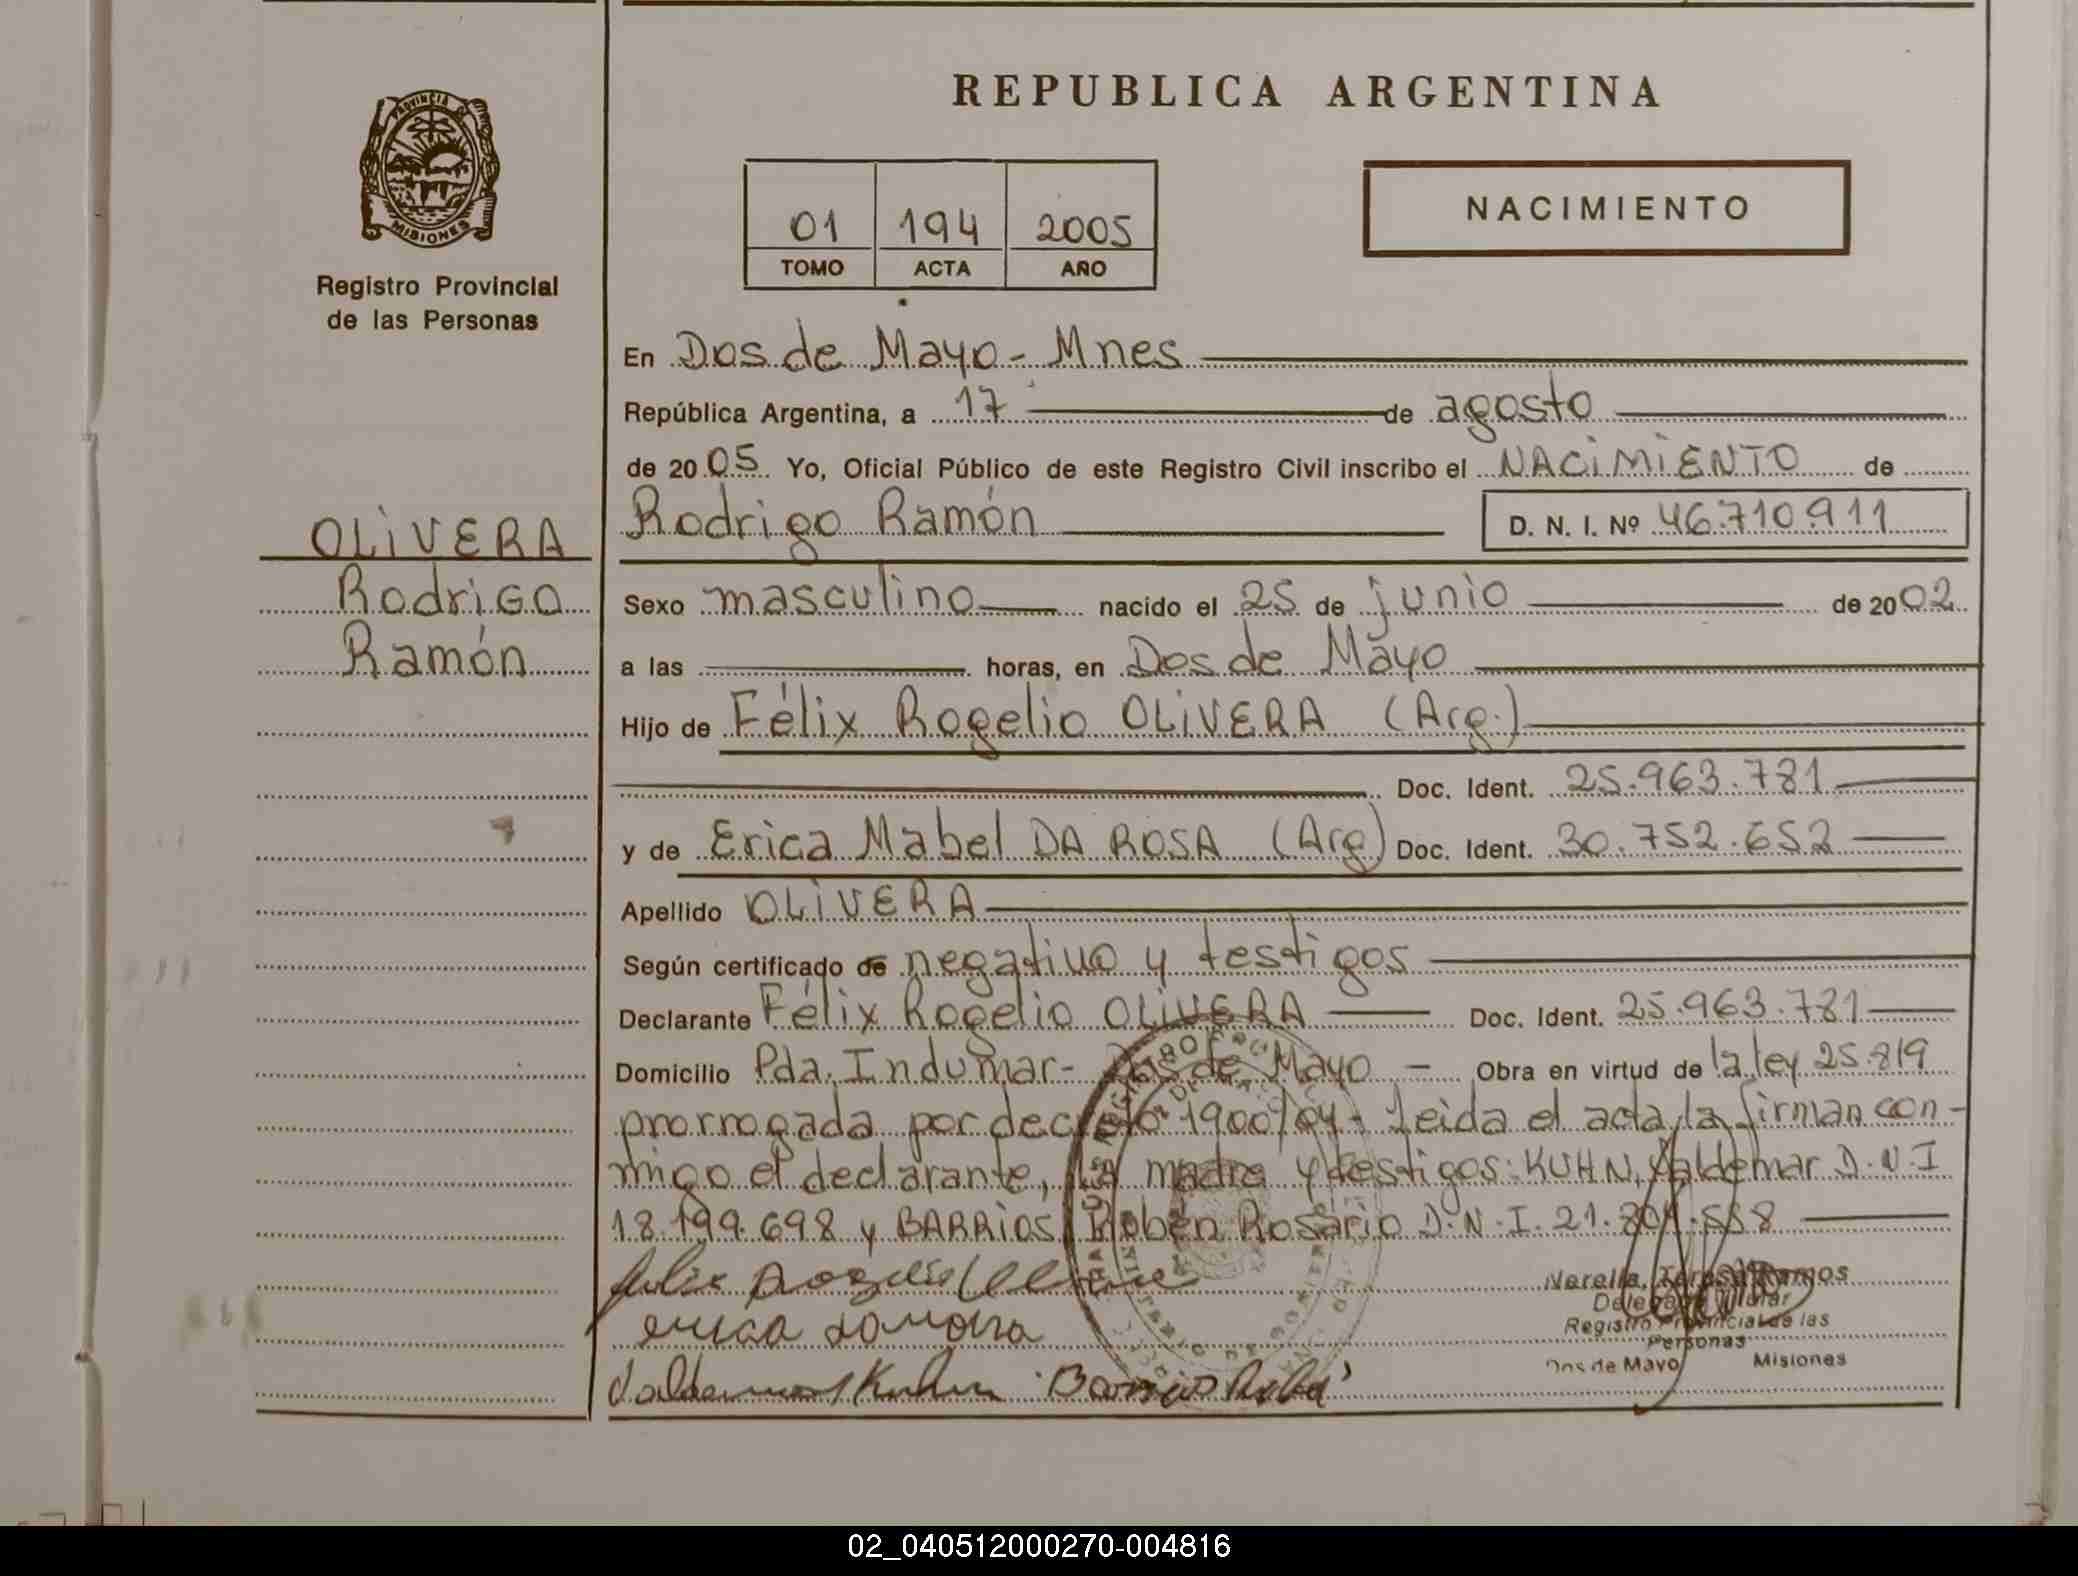 REPUBLICA ARGENTINA
PROVINCIA DE
MISIONES
Registro Provincial
de las Personas
NACIMIENTO
01 194 2005
TOMO ACTA AÑO
En Dos de Mayo - Mnes
República Argentina, a 17 de agosto
de 2005 Yo, Oficial Público de este Registro Civil inscribo el NACIMIENTO de
OLIVERA
Rodrigo Ramón D. N. I. Nº 46.710.911
Rodrigo
Sexo masculino nacido el 25 de junio de 2002
Ramón
a las horas, en Dos de Mayo
Hijo de Félix Rogelio OLIVERA (Arg.)
Doc. Ident. 25.963.781
y de Erica Mabel DA ROSA (Arg) Doc. Ident. 30.752.652
Apellido OLIVERA
Según certificado de negativo y testigos
Declarante Félix Rogelio OLIVERA Doc. Ident. 25.963.781
Domicilio Pda. Indumar - Dos de Mayo - Obra en virtud de la ley 25.819
prorrogada por decreto 1900/04 - Leida el acta, la firman con-
migo el declarante, la madre y testigos: KUHN, Valdemar D.N.I
18.199.698 y BARRIOS, Rubén Rosario D.N.I. 21.
Felix Rogelio
erica
Valdemar Kuhn Barrios
Ramos
Delegada Titular
Registro Provincial de las
Personas
Dos de Mayo Misiones
02_040512000270-004816